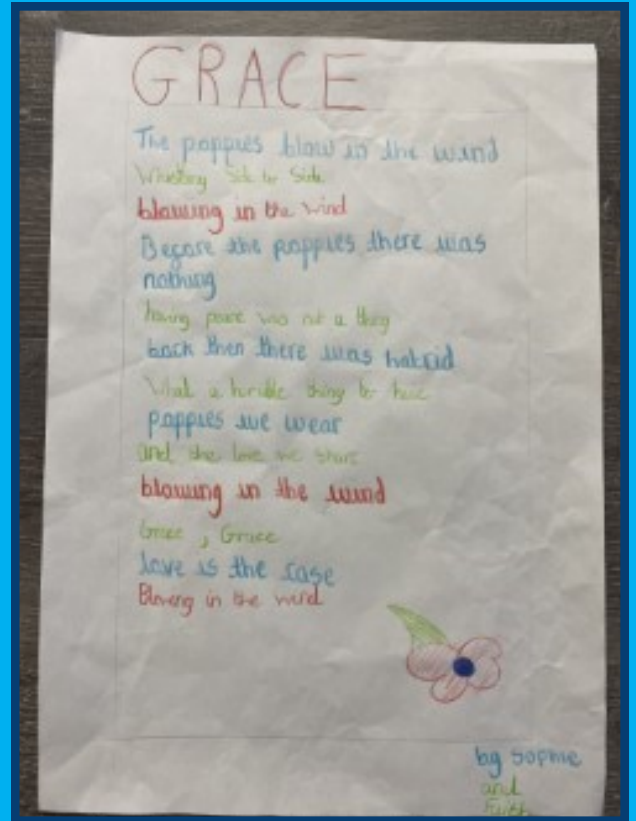 GRACE
The poppies blow in the wind
Side to Side
blowing in the wind
Before the poppies there was
nothing
having peace was not a thing
back then there was hatrid
What a horrible thing to have
poppies we wear
and the love we share
blowing in the wind
Grace , Grace
love is the case
Blowing in the wind
by Sophie
and
Faith